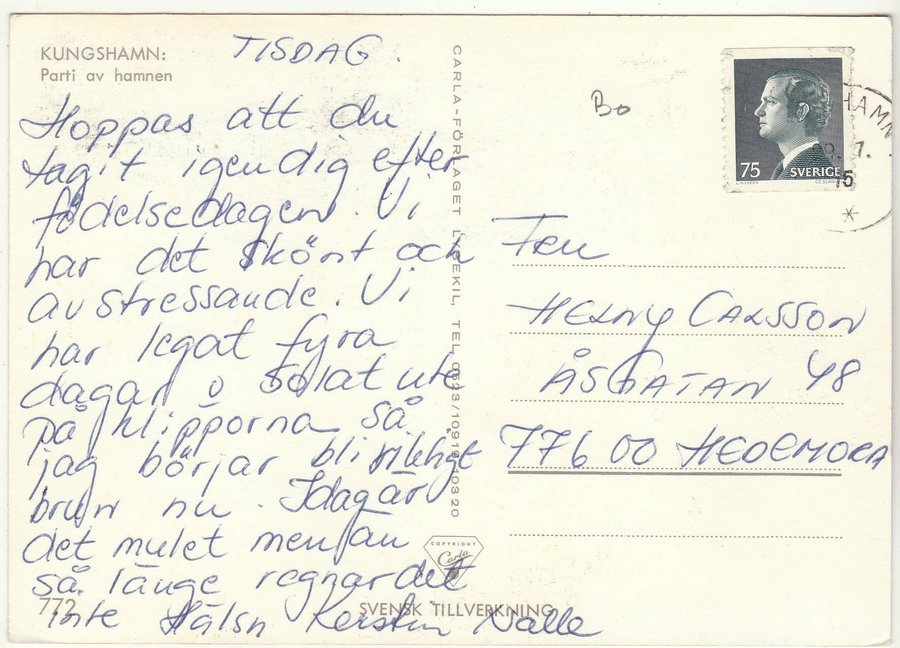 KUNGSHAMN:
Parti av hamnen
TISDAG.
Hoppas att du
tagit igendig efter
födelsedagen. Vi
har det skönt och
avstressande. Vi
har legat fyra
dagar o solat ute
på klipporna så
jag börjar bli riktigt
brun nu. Idag är
det mulet men än
så länge regnar det
inte Hälsn Kerstin Nalle
772
SVENSK TILLVERKNING
CARLA-FÖRLAGET LYSEKIL, TEL. 0523/10919, 10320
COPYRIGHT
Carla
Bo
75
SVERIGE
HAMN
7.
75
Fru
HELNY CARLSSON
ÅSGATAN 48
776 00 HEDEMORA